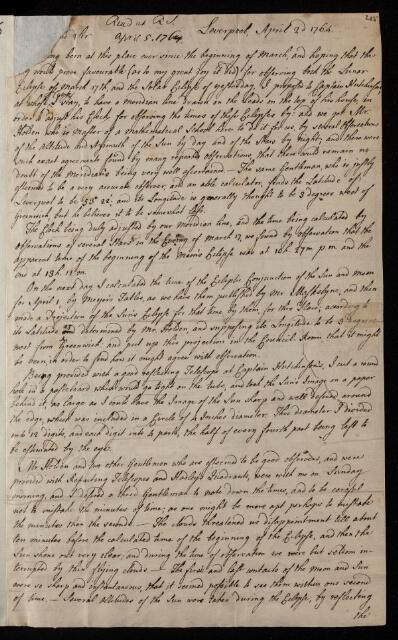 Read at R.S.
April 5. 1764
Leverpool, April 2d 1764.
215
being here at this place ever since the beginning of March, and hoping that the
would prove favourable (as to my great Joy it did) for observing both the Lunar
Eclipse of March 17th, and the Solar Eclipse of yesterday, I proposed to Captain Hutchinson,
at whose House I stay, to have a meridian line drawn on the Leads on the top of his house, in
order to adjust his Clock for observing the times of these Eclipses by: and we got Mr.
Holden who is master of a mathematical School here to do it for us, by several observations
of the Altitude and Azimuth of the Sun by day and of the Stars by night; and there were
such exact agreements found by many repeated observations, that there could remain no
doubt of the Meridian's being very well ascertained. — The same Gentleman, who is justly
esteemed to be a very accurate observer, and an able calculator, finds the Latitude of
Leverpool to be 53° 22', and its Longitude is generally thought to be 3 degrees west of
Greenwich, but he believes it to be somewhat less.
The Clock being duly adjusted by our meridian line, and the time being calculated by
observations of several Stars in the Evening of March 17, we found by observation that the
apparent time of the beginning of the Moon's Eclipse was at 10h. 27m p.m and the
end at 13h. 11m.
On the next day I calculated the time of the Ecliptic Conjunction of the Sun and moon
for April 1, by Mayer's Tables, as we have them published by Mr. Maskelyne, and then
made a Projection of the Sun's Eclipse for that time by them, for this Place, according to
its Latitude as determined by Mr. Holden, and supposing its Longitude to be 3 degrees
west from Greenwich, and put up this projection in the Council Room that it might
be seen, in order to find how it might agree with observation.
Being provided with a good reflecting Telescope at Captain Hutchinson's, I cut a round
hole in a pasteboard which would go tight on the tube, and cast the Sun's Image on a paper
behind it, as large as I could have the Image of the Sun sharp and well defined around
the edge, which was included in a Circle of 4 Inches diameter. This diameter I divided
into 12 digits, and each digit into 4 parts, the half of every fourth part being left to
be estimated by the eye.
Mr. Holden and two other Gentlemen who are esteemed to be good observers, and were
provided with Refracting Telescopes and Hadley's Quadrants, were with me on Sunday
morning, and I desired a third Gentleman to write down the times, and to be careful
not to mistake the minutes of time; as one might be more apt perhaps to mistake
the minutes than the seconds. — The Clouds threatened us disappointment till about
ten minutes before the calculated time of the beginning of the Eclipse, and then the
Sun shone out very clear, and during the time of observation we were but seldom in-
terrupted by thin flying clouds. — The first and last contacts of the moon and Sun
were so sharp and instantaneous, that it seemed possible to see them within one second
of time. — Several Altitudes of the Sun were taken during the Eclipse, by reflecting
the